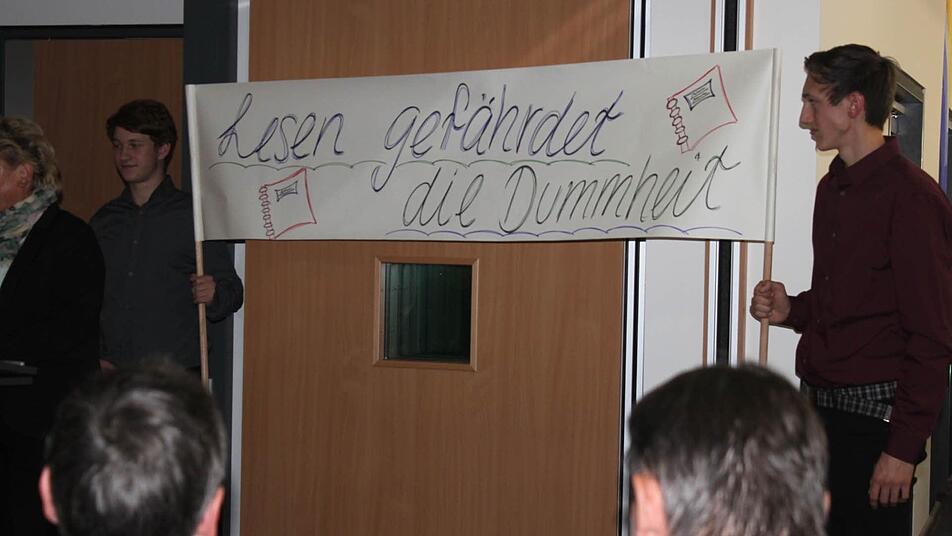 Lesen gefährdet
die Dummheit